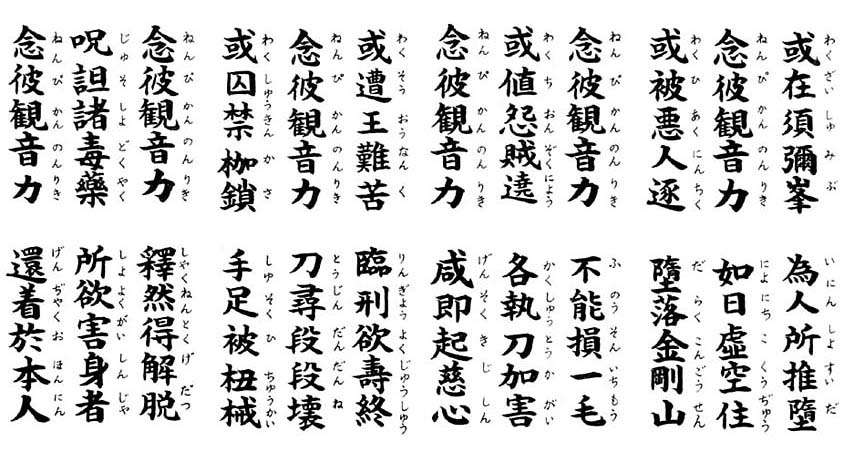 わくざい しゅ み ぶ
或在須彌峯
いにん しよ すい だ
為人所推墮
ねんぴ かん のん りき
念彼観音力
によにち こ くう ぢゅう
如日虚空住
わくひ あく にんちく
或被悪人逐
だ らく こんごう せん
墮落金剛山
ねんぴ かん のん りき
念彼観音力
ふ のう そん いちもう
不能損一毛
わく ち おん ぞくにょう
或値怨賊遶
かくしゅうとう か がい
各執刀加害
ねんぴ かん のん りき
念彼観音力
げんそく き じ しん
咸即起慈心
わく そう おう なん く
或遭王難苦
りんぎょう よくじゅうしゅう
臨刑欲壽終
ねん ぴ かん のん りき
念彼観音力
とうじん だん だん ね
刀尋段段壊
わく しゅうきん か さ
或囚禁枷鎖
しゅ そく ひ ちゅうかい
手足被杻械
ねん ぴ かん のん りき
念彼観音力
しゃくねんとく げ だつ
釋然得解脱
じゅ そ しよ どく やく
呪詛諸毒藥
しよ よくがい しん じゃ
所欲害身者
ねんぴ かん のん りき
念彼観音力
げん ぢやく お ほん にん
還着於本人